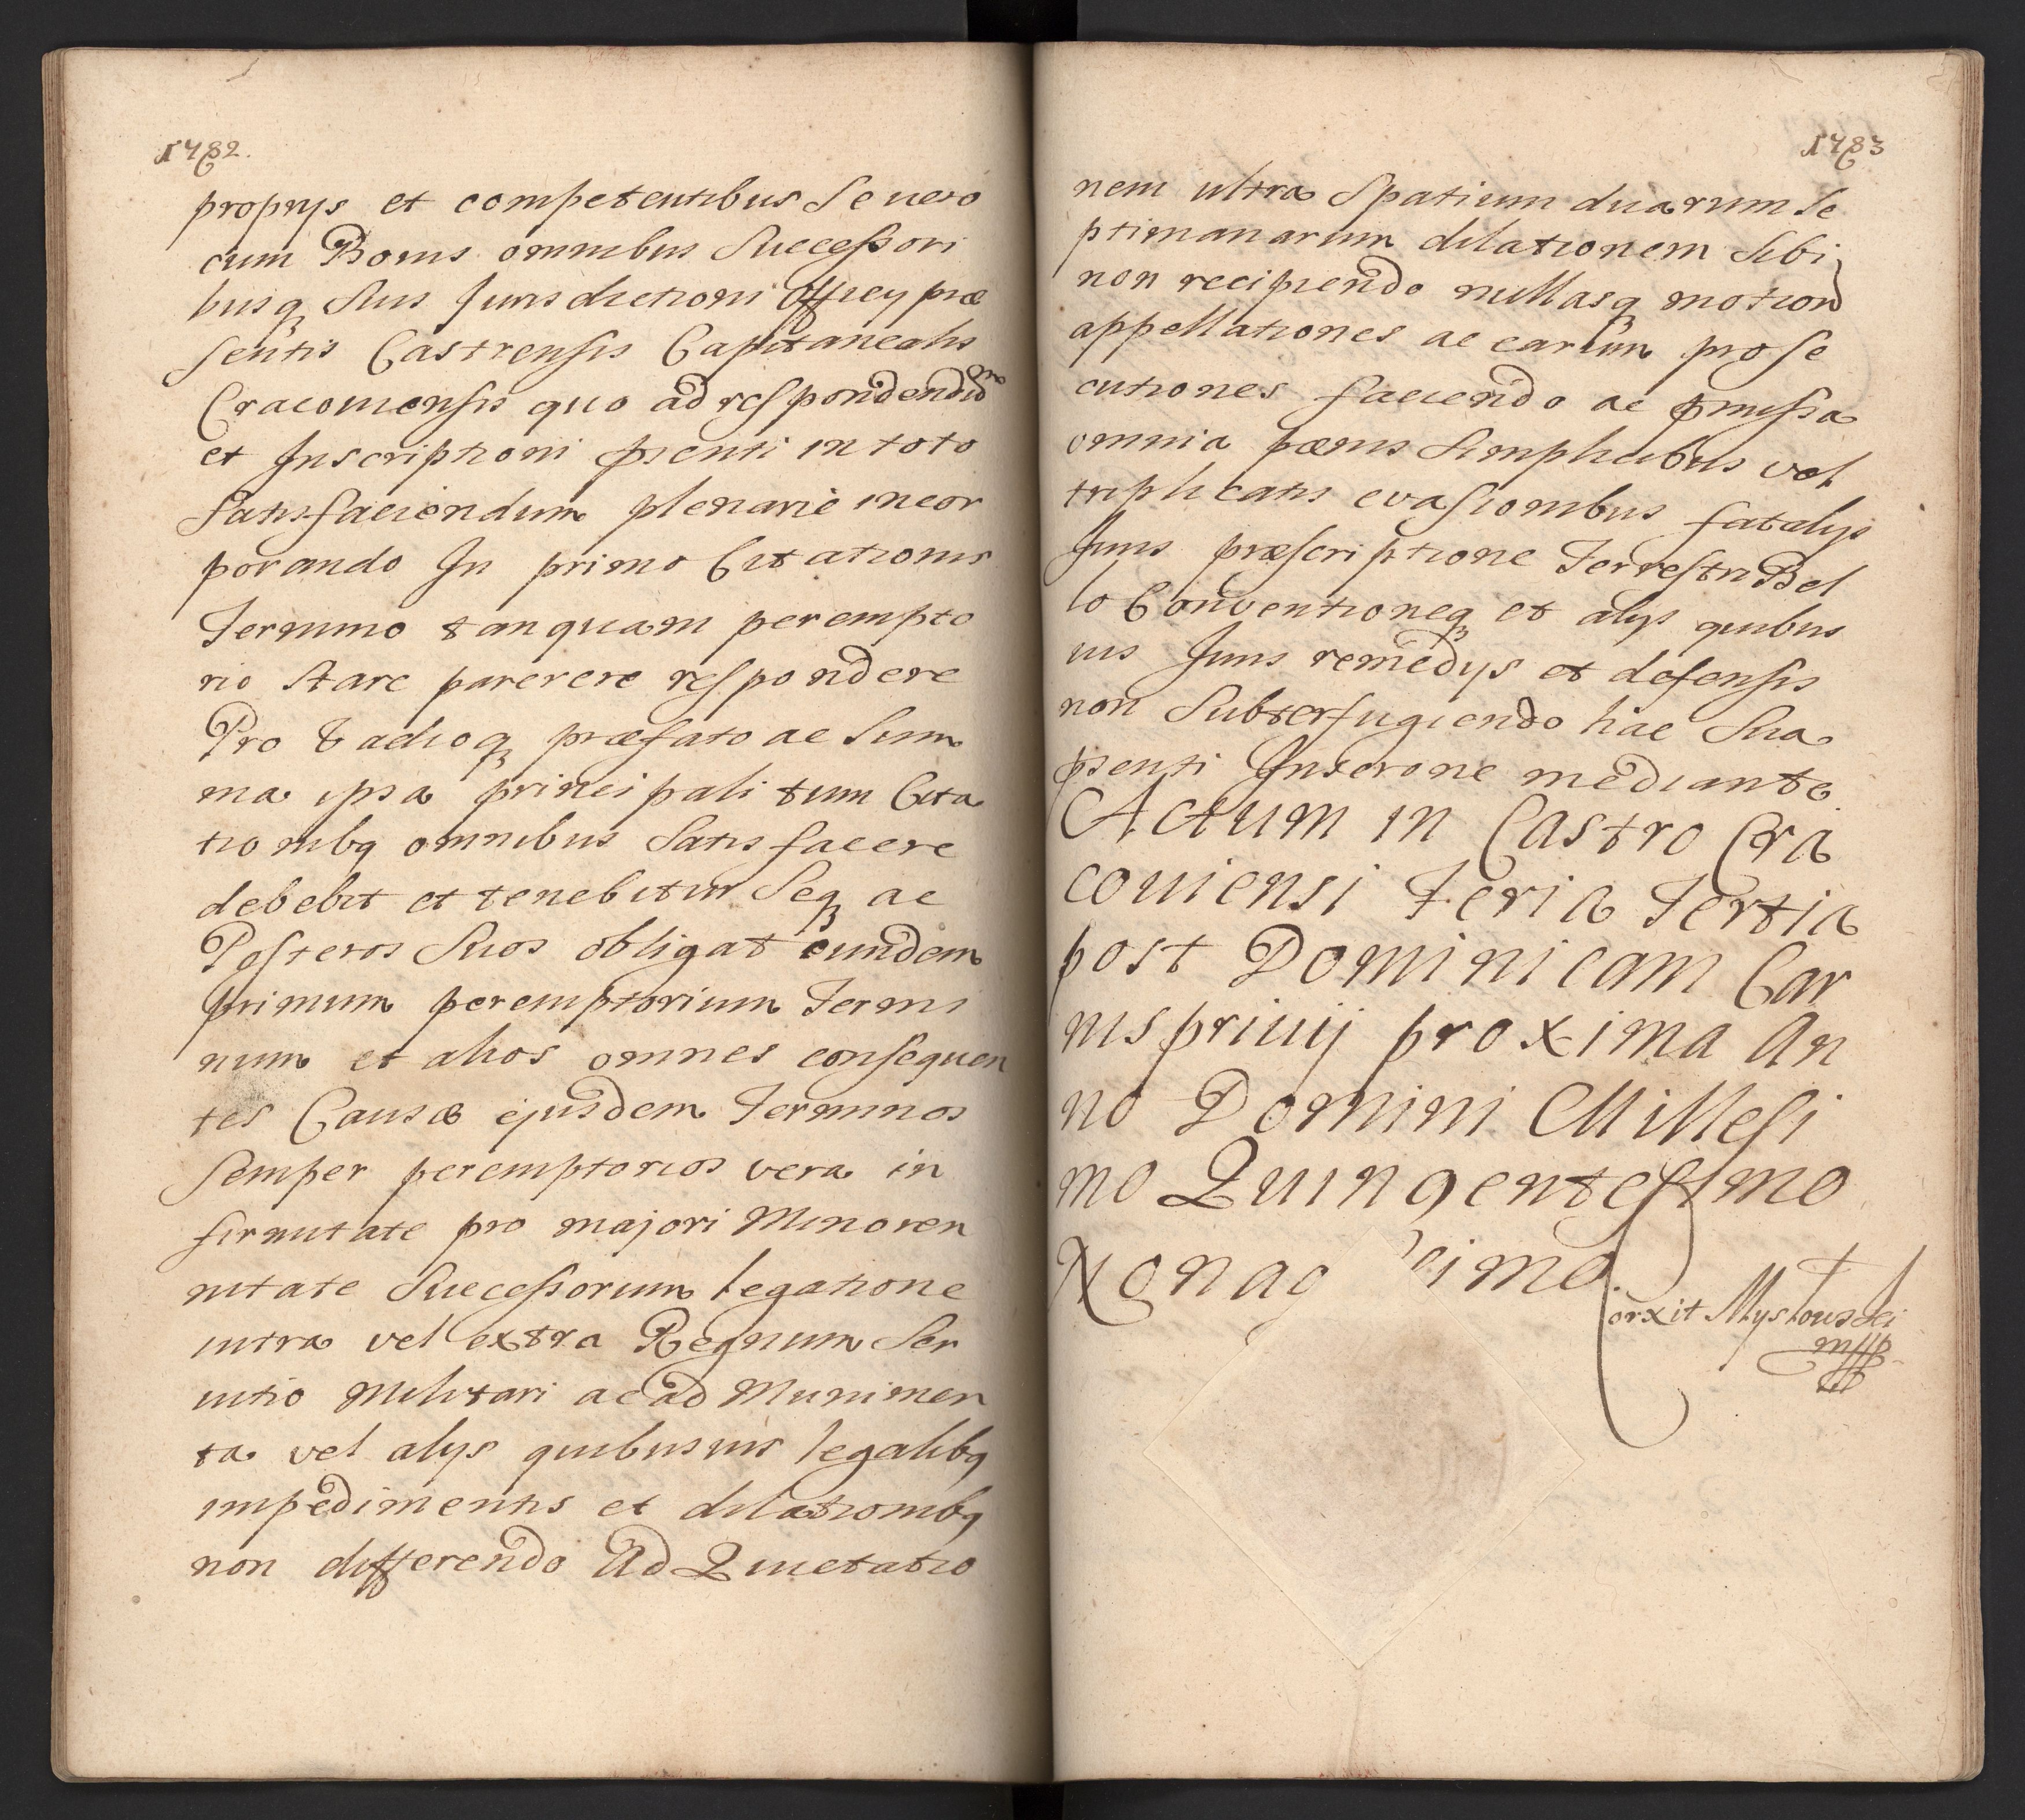 1782.
proprijs et competentibus Se vero
cum Bonis omnibus Successori
busq Suis Jurisdictioni Officij præ
sentis Castrensis Capitanealis
Cracoviensis quo ad respondendum
et Inscriptioni pñenti in toto
Satisfaciendum plenarie incor
porando In primo Citationis
Termino tanquam perempto
rio Stare parerere respondere
Pro Vadioq præfato ac Sum
ma ipsa principali tum Cita
tionibq omnibus Satisfacere
debebit et tenebitur Seq ac
Posteros Suos obligat eundem
primum peremptorium Termi
num et alios omnes consequen
tes Causæ ejusdem Terminos
Semper peremptorios vera in
firmitate pro majori Minoren
nitate Successorum legatione
intra vel extra Regnum Ser
vitio Militari ac ad Munimen
ta vel alijs quibusvis legalibq
impedimentis et dilationibq
non differendo Ad Quietatio
1783
nem ultra Spatium duarum Se
ptimanarum dilationem Sibi
non recipiendo nullasq motion
appellationes ac earum prose
cutiones faciendo ac pmissa
omnia pœnis Simplicibus vel
triplicatis evasionibus fatalijs
Juris præscriptione Terrestri Bel
lo Conventioneq et alijs quibus
vis Juris remedijs et defensis
non Subterfugiendo hac Sua
pñenti Inscrone mediante.
Actum in Castro Cra
coviensi Feria Tertia
post Dominicam Car
nisprivij proxima An
no Domini Millesi
mo Quingentesimo
Nonag simo.